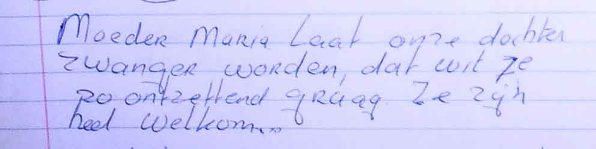 Moeder Maria Laat onze dochter
zwanger worden, dat wil ze
zo ontzettend graag. Ze zijn
heel welkom...